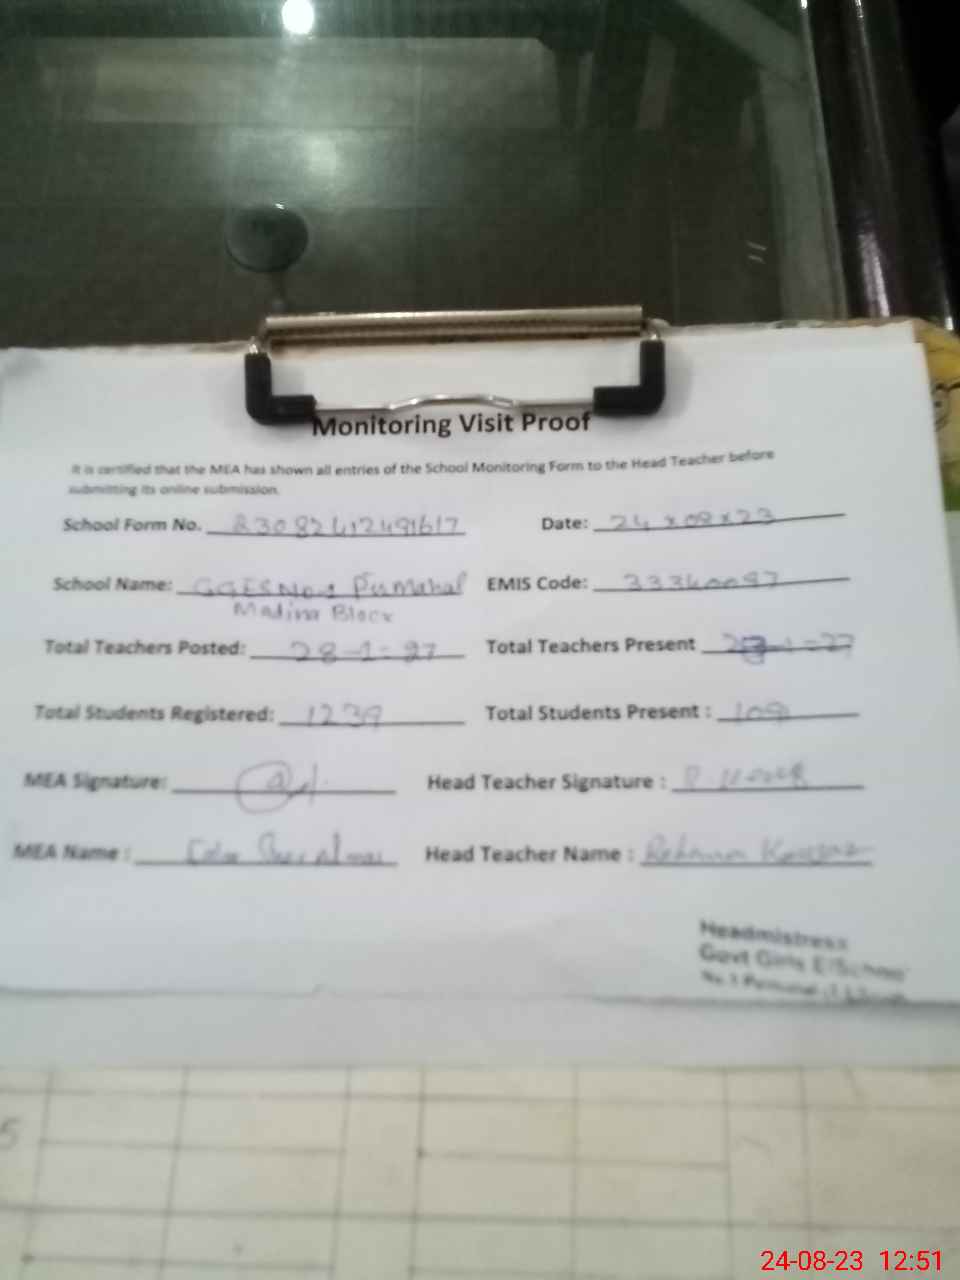 Monitoring Visit Proof
It is certified that the MEA has shown all entries of the School Monitoring Form to the Head Teacher before
submitting its online submission.
School Form No. Date: 24 x 08 x 23
School Name: GGES No.1 Pirmahal EMIS Code:
Madina Block
Total Teachers Posted: 28-1=27 Total Teachers Present
Total Students Registered: 1239 Total Students Present : 109
MEA Signature: Head Teacher Signature :
MEA Name : Head Teacher Name : Rehana Kousar
Headmistress
Govt Girls E/School
No.1
5
24-08-23 12:51